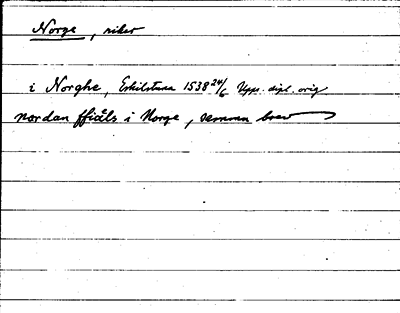 Norge, riket
i Norghe, Eskilstuna 1538 24/6 Upps. dipl. orig
nordan ffiäls i Norge, samma brev